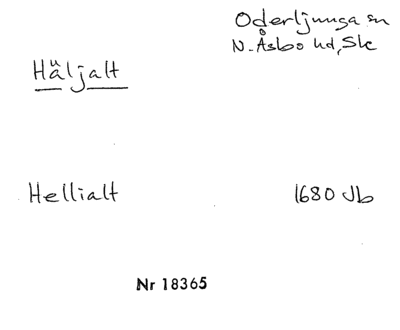 Oderljunga sn
N. Åsbo hd, Sk
Häljalt
Hellialt 1680 Jb
Nr 18365